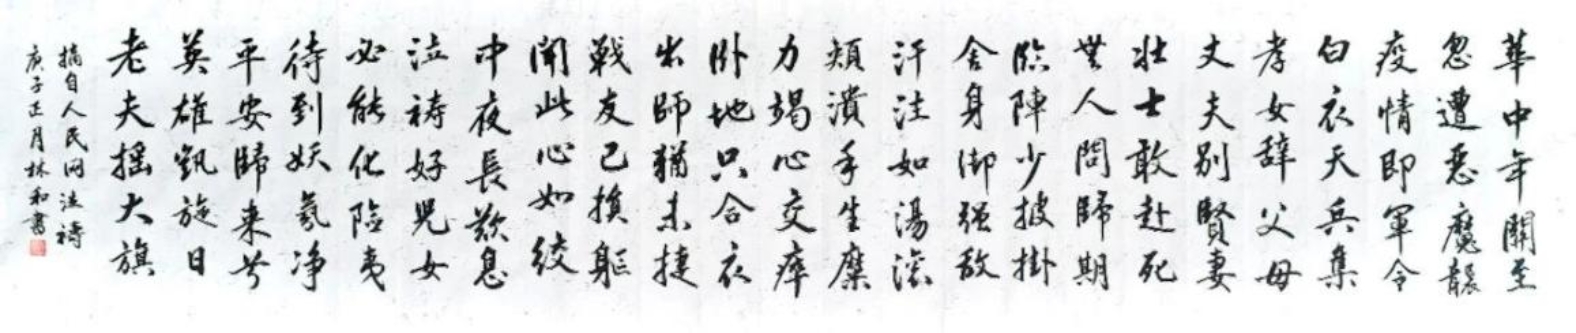 華中年關至
忽遭惡魔襲
疫情即軍令
白衣天兵集
孝女辭父母
丈夫別賢妻
壯士敢赴死
無人問歸期
臨陣少披掛
舍身御強敵
汗注如湯滾
頰潰手生糜
力竭心交瘁
卧地只合衣
出師猶未捷
戰友已損軀
聞此心如絞
中夜長歎息
泣禱好兒女
必能化險夷
待到妖氛净
平安歸来兮
英雄凱旋日
老夫搖大旗
摘自人民网泣禱
庚子正月林和書